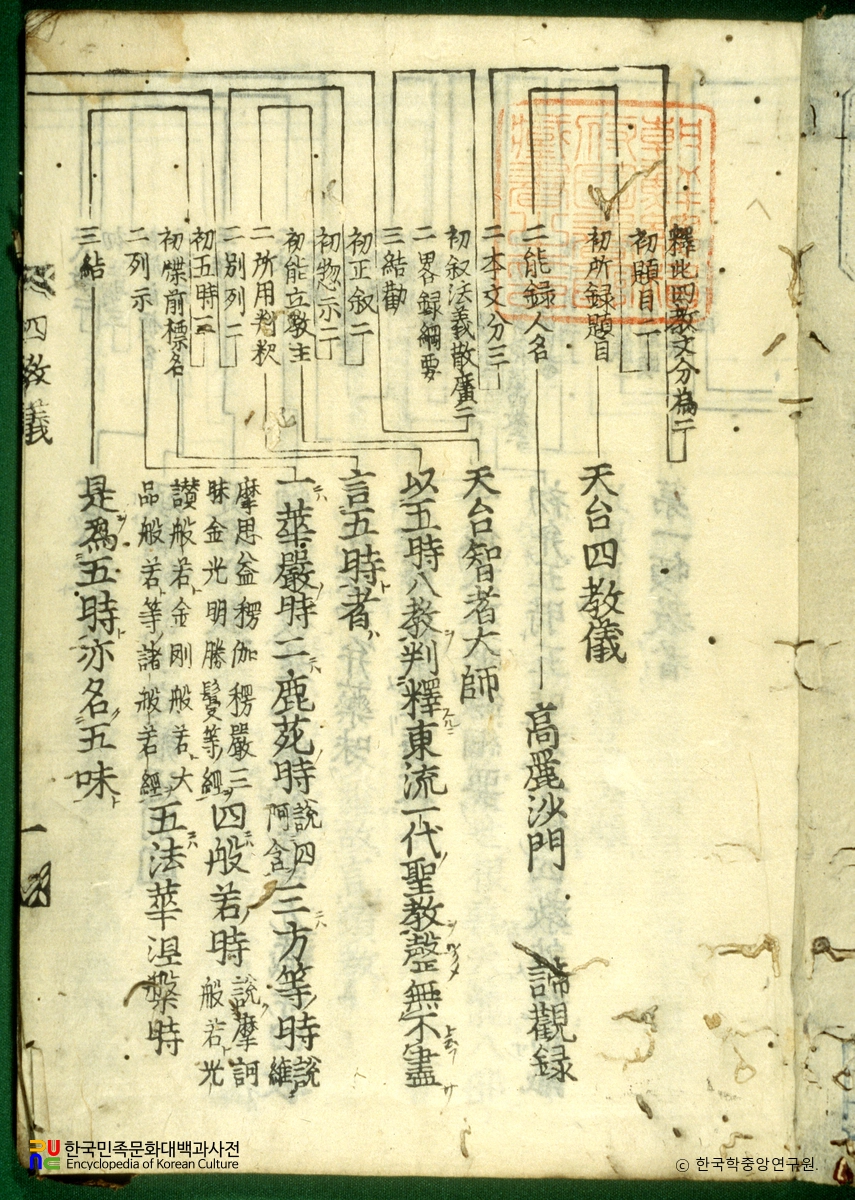 釋此四教文分為二
初題目二
初所録題目
二能録人名
二本文分三
初叙法義散廣二
二畧録綱要
三結勸
初正叙二
初惣示二
初能立教主
二所用教
二別列二
初五時三
初牒前標名
二列示
三結
天台四教儀
高麗沙門 諦觀録
天台智者大師
以五時八教判釋東流一代聖教罄無不盡
言五時者
一華嚴時二鹿苑時說四阿含三方等時說維
摩思益楞伽楞嚴三昧金光明勝鬘等經四般若時說摩訶般若光
讃般若金剛般若大品般若等諸般若經五法華涅槃時
是為五時亦名五味
四教儀
一
한국민족문화대백과사전
Encyclopedia of Korean Culture
© 한국학중앙연구원.